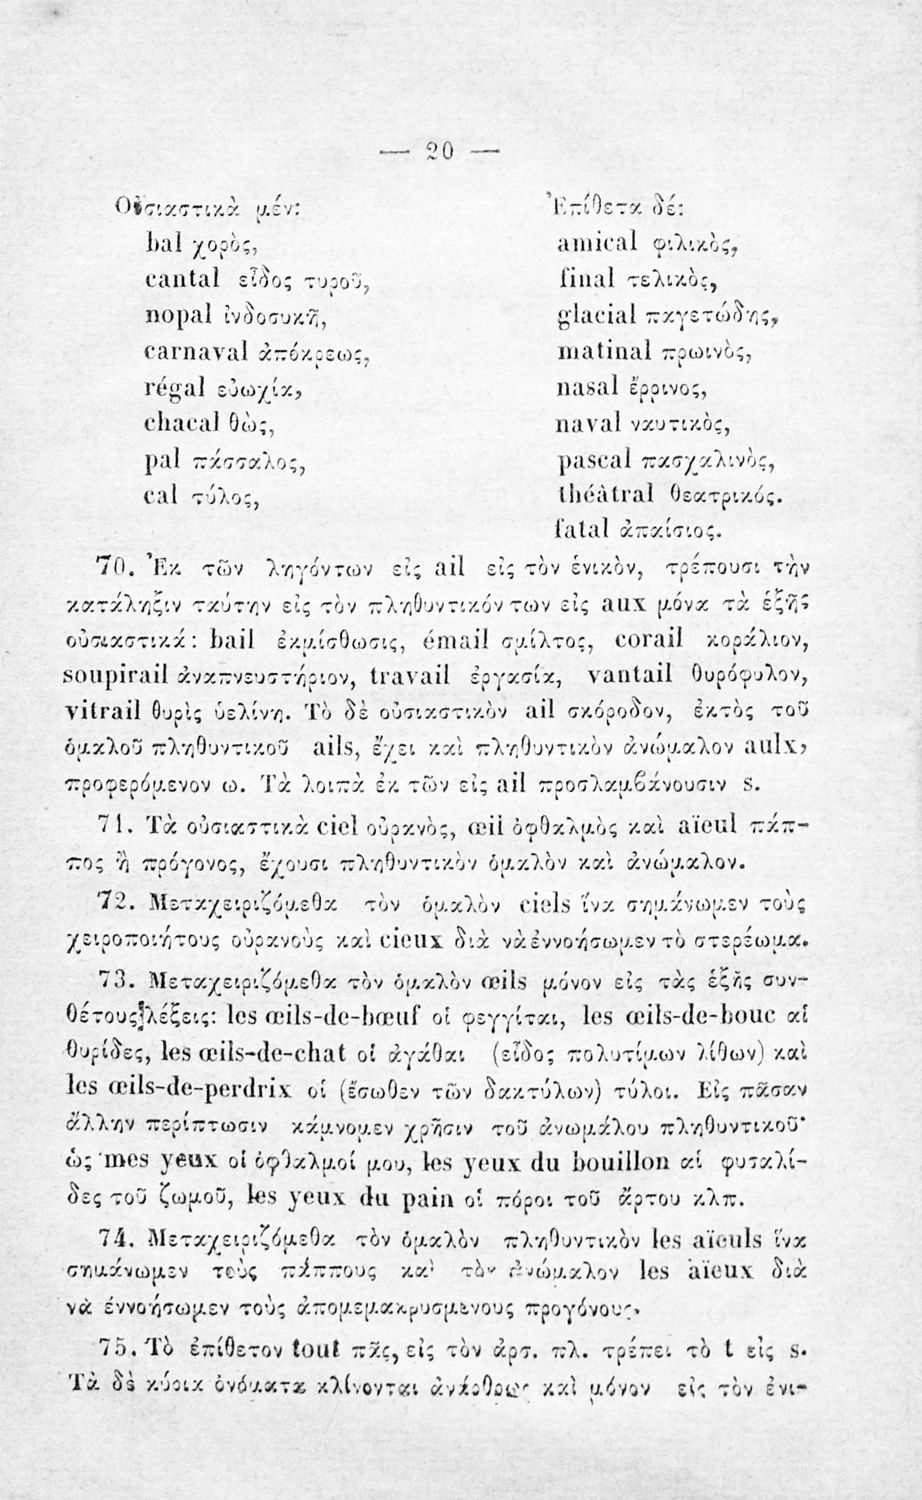 — 20 —
Οὐσιαστικὰ μέν:
bal χορὸς,
cantal εἶδος τυροῦ,
nopal ἰνδοσυκῆ,
carnaval ἀπόκρεως,
régal εὐωχία,
chacal θὼς,
pal πάσσαλος,
cal τύλος,
Ἐπίθετα δέ:
amical φιλικὸς,
final τελικὸς,
glacial παγετώδης,
matinal πρωινὸς,
nasal ἔρρινος,
naval ναυτικὸς,
pascal πασχαλινὸς,
théâtral θεατρικός.
fatal ἀπαίσιος.
70. Ἐκ τῶν ληγόντων εἰς ail εἰς τὸν ἑνικὸν, τρέπουσι τὴν
κατάληξιν ταύτην εἰς τὸν πληθυντικόν των εἰς aux μόνα τὰ ἑξῆς
οὐσιαστικά: bail ἐκμίσθωσις, émail σμίλτος, corail κοράλιον,
soupirail ἀναπνευστήριον, travail ἐργασία, vantail θυρόφυλον,
vitrail θυρὶς ὑελίνη. Τὸ δὲ οὐσιαστικὸν ail σκόροδον, ἐκτὸς τοῦ
ὁμαλοῦ πληθυντικοῦ ails, ἔχει καὶ πληθυντικὸν ἀνώμαλον aulx,
προφερόμενον ω. Τὰ λοιπὰ ἐκ τῶν εἰς ail προσλαμβάνουσιν s.
71. Τὰ οὐσιαστικὰ ciel οὐρανὸς, œil ὀφθαλμὸς καὶ aïeul πάπ-
πος ἢ πρόγονος, ἔχουσι πληθυντικὸν ὁμαλὸν καὶ ἀνώμαλον.
72. Μεταχειριζόμεθα τὸν ὁμαλὸν ciels ἵνα σημάνωμεν τοὺς
χειροποιήτους οὐρανοὺς καὶ cieux διὰ νὰ ἐννοήσωμεν τὸ στερέωμα.
73. Μεταχειριζόμεθα τὸν ὁμαλὸν œils μόνον εἰς τὰς ἑξῆς συν-
θέτους λέξεις: les œils-de-bœuf οἱ φεγγίται, les œils-de-bouc αἱ
θυρίδες, les œils-de-chat οἱ ἀγάθαι (εἶδος πολυτίμων λίθων) καὶ
les œils-de-perdrix οἱ (ἔσωθεν τῶν δακτύλων) τύλοι. Εἰς πᾶσαν
ἄλλην περίπτωσιν κάμνομεν χρῆσιν τοῦ ἀνωμάλου πληθυντικοῦ·
ὡς mes yeux οἱ ὀφθαλμοί μου, les yeux du bouillon αἱ φυσαλί-
δες τοῦ ζωμοῦ, les yeux du pain οἱ πόροι τοῦ ἄρτου κλπ.
74. Μεταχειριζόμεθα τὸν ὁμαλὸν πληθυντικὸν les aïeuls ἵνα
σημάνωμεν τοὺς πάππους καὶ τὸν ἀνώμαλον les aïeux διὰ
νὰ ἐννοήσωμεν τοὺς ἀπομεμακρυσμένους προγόνους.
75. Τὸ ἐπίθετον tout πᾶς, εἰς τὸν ἀρσ. πλ. τρέπει τὸ t εἰς s.
Τὰ δὲ κύρια ὀνόματα κλίνονται ἀνάρθρως καὶ μόνον εἰς τὸν ἑνι-